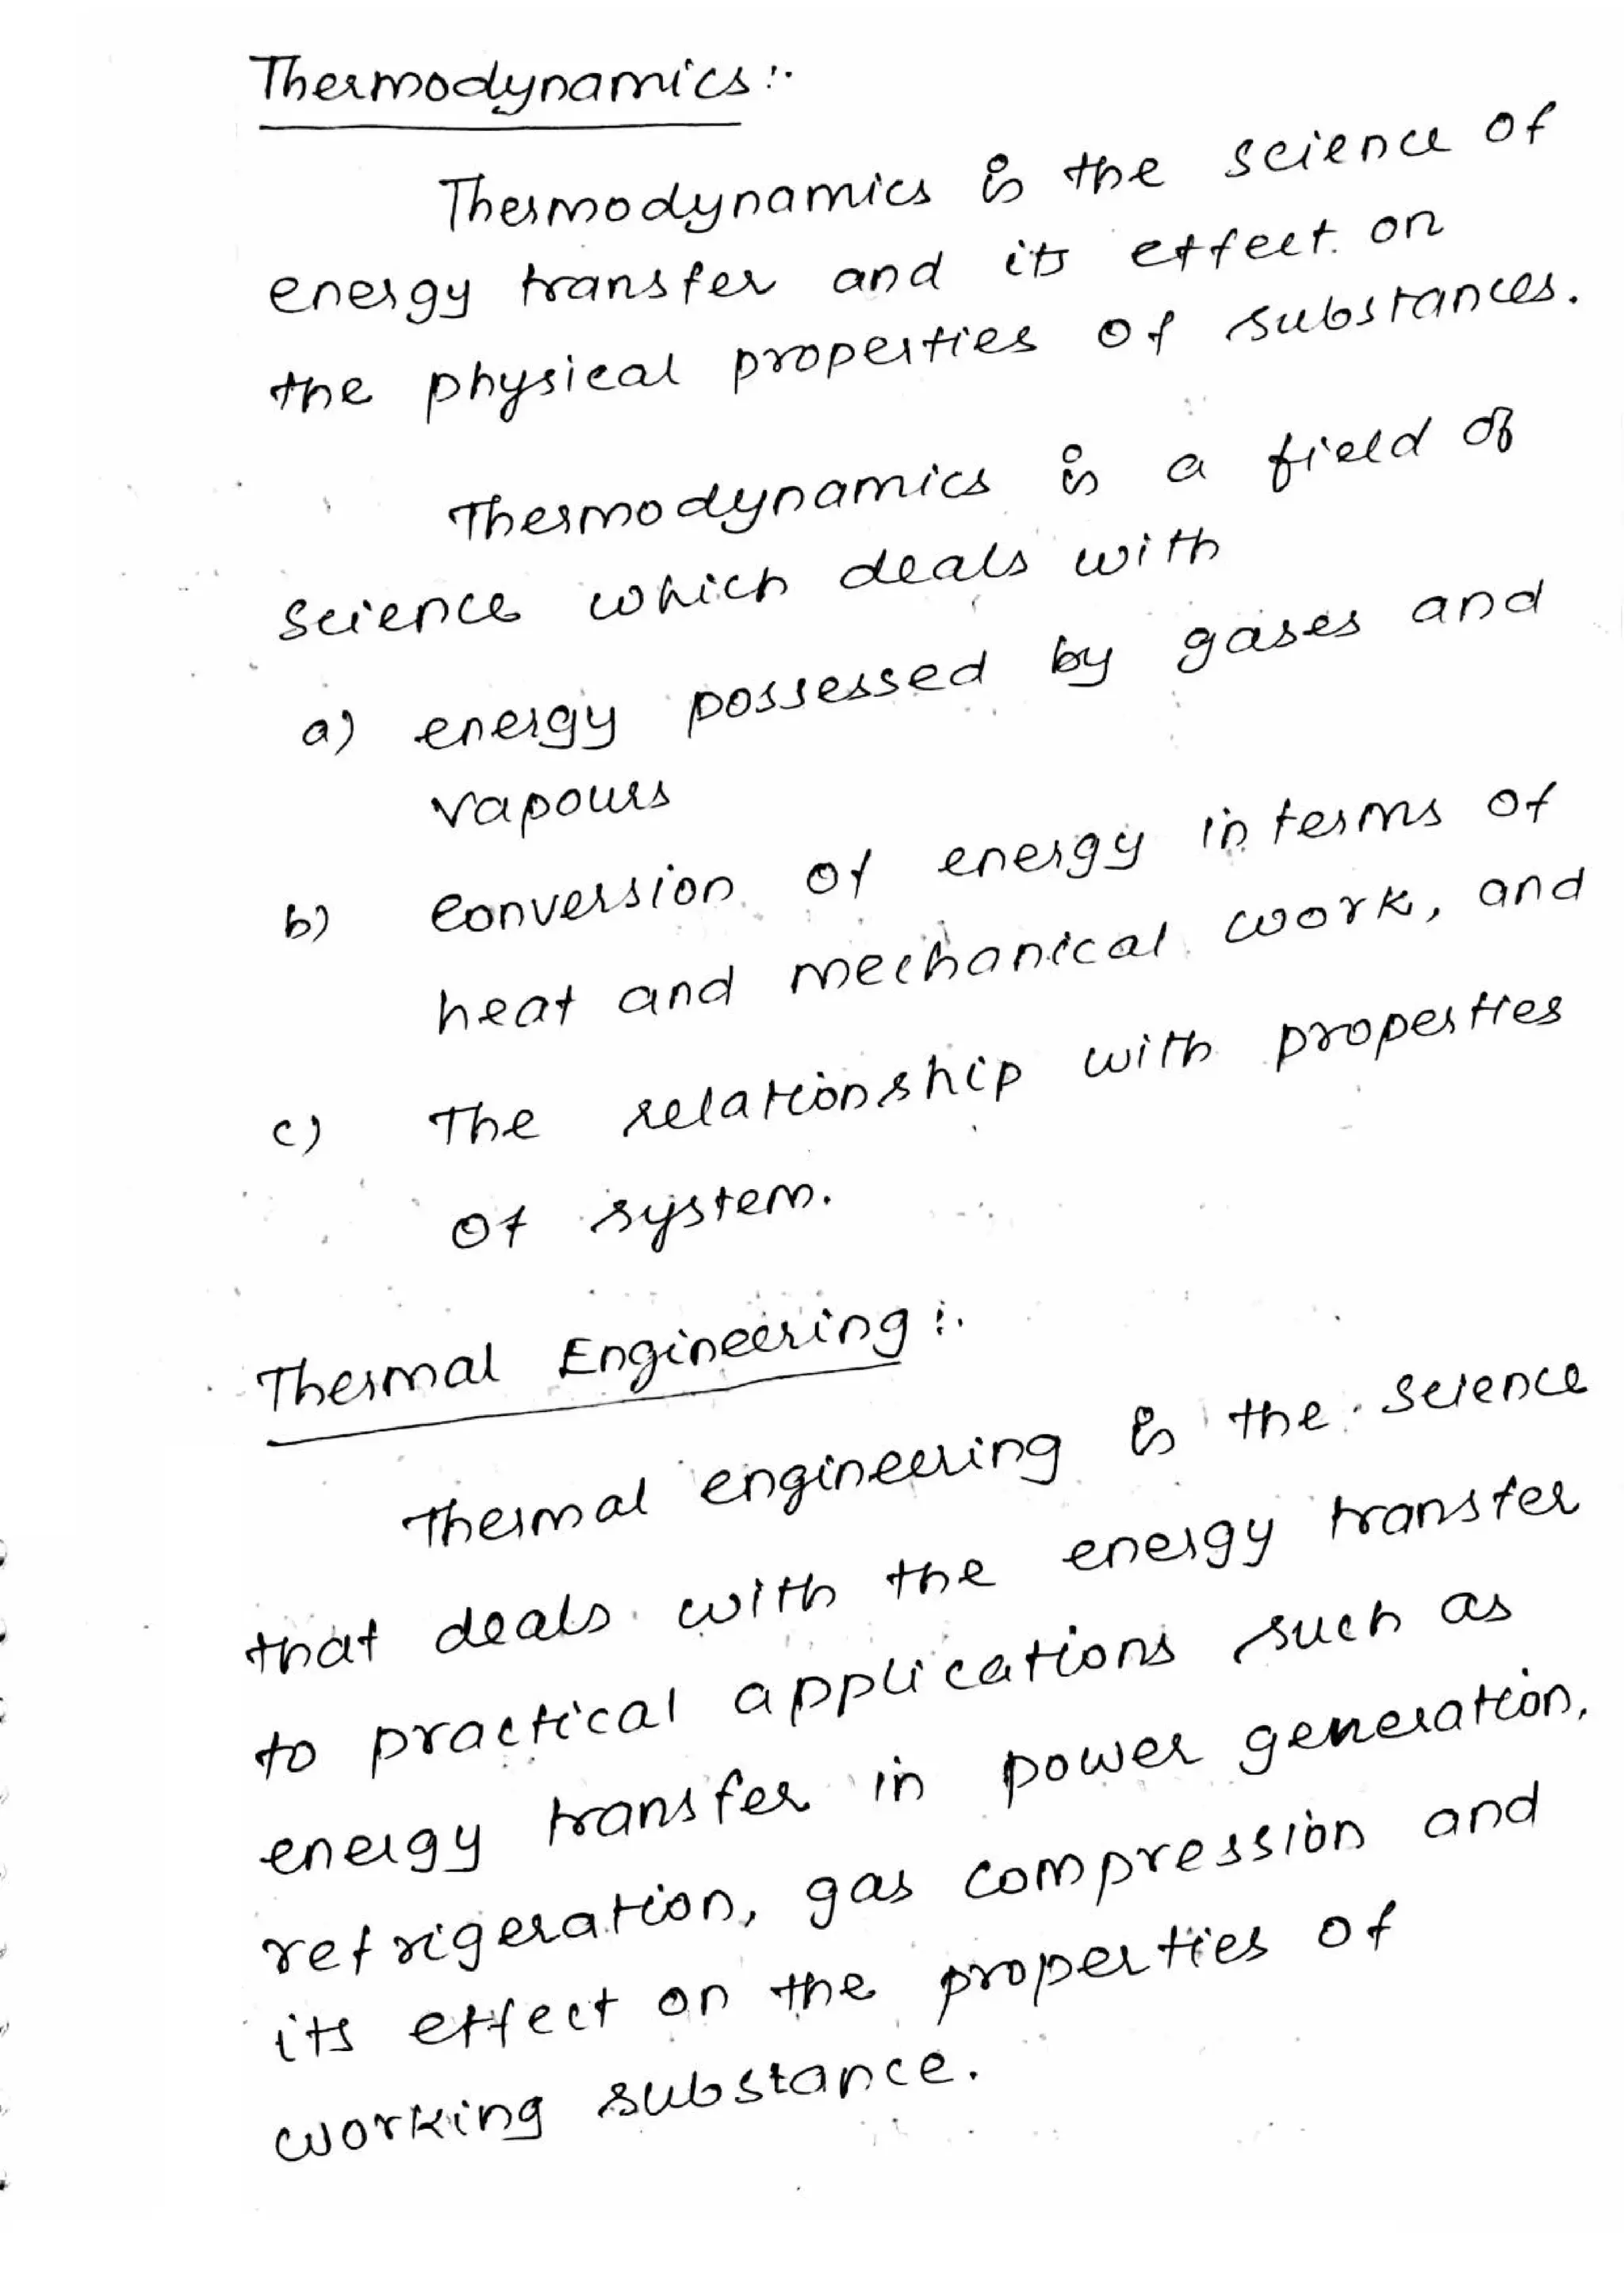 Thermodynamics :-
Thermodynamics is the science of
energy transfer and its effect on
the physical properties of substances.
Thermodynamics is a field of
science which deals with
a) energy possessed by gases and
vapours
b) conversion of energy in terms of
heat and mechanical work, and
c) The relationship with properties
of system.
Thermal Engineering :-
Thermal engineering is the science
that deals with the energy transfer
to practical applications such as
energy transfer in power generation,
refrigeration, gas compression and
its effect on the properties of
working substance.